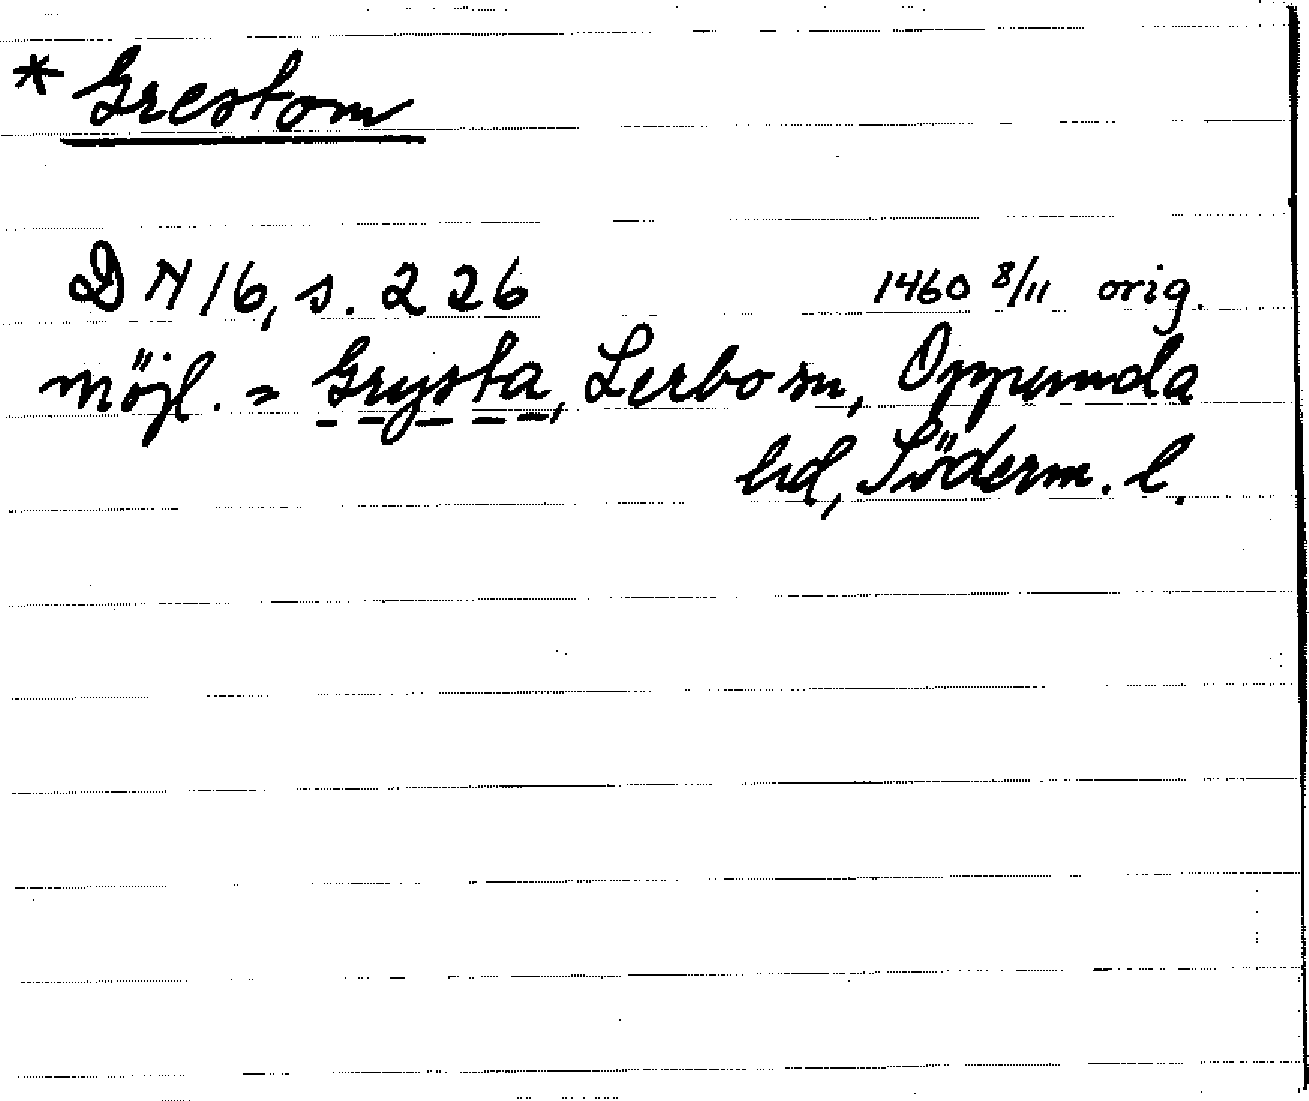 * Grestom
DN 16, s. 226 1460 8/11 orig.
möjl. = Grysta, Lerbo sn, Oppunda
hd, Söderm. l.